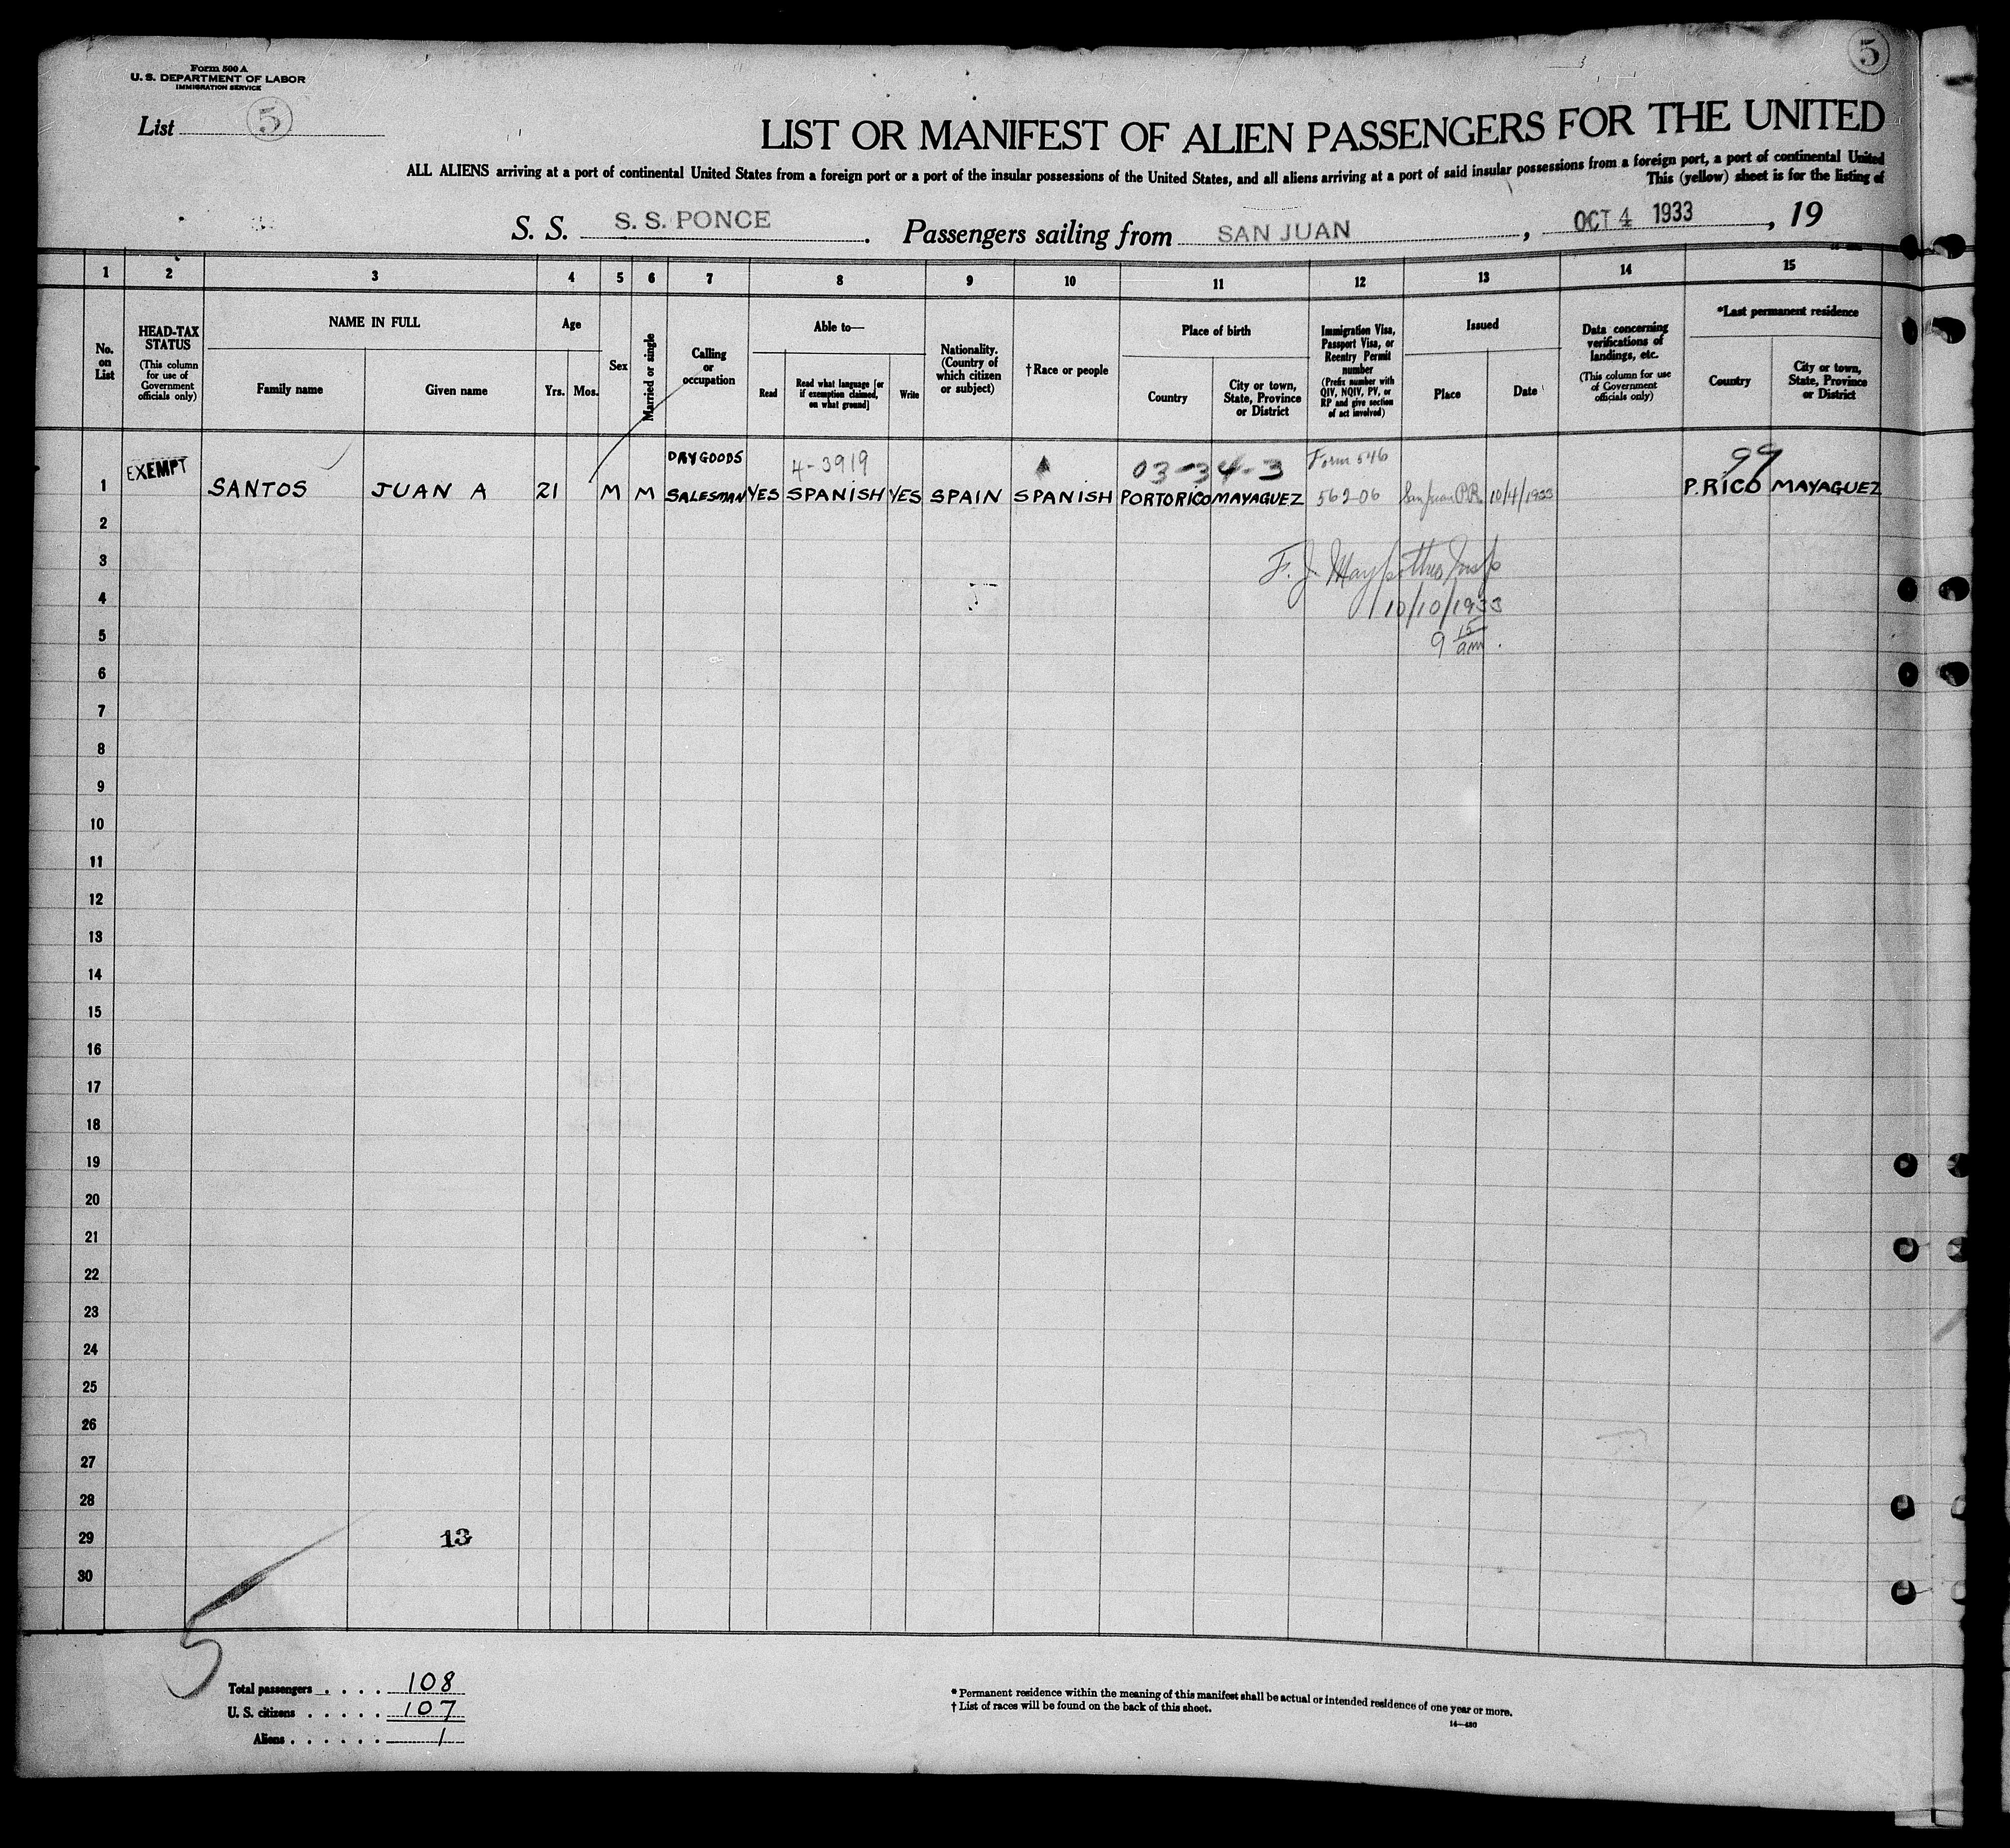 5
Form 500 A
U. S. DEPARTMENT OF LABOR
IMMIGRATION SERVICE
List 5
LIST OR MANIFEST OF ALIEN PASSENGERS FOR THE UNITED
ALL ALIENS arriving at a port of continental United States from a foreign port or a port of the insular possessions of the United States, and all aliens arriving at a port of said insular possessions from a foreign port, a port of continental United
This (yellow) sheet is for the listing of
S. S. S. S. PONCE. Passengers sailing from SAN JUAN, OCT 4 1933, 19
1 2 3 4 5 6 7 8 9 10 11 12 13 14 15
No. on List
HEAD-TAX STATUS
(This column for use of Government officials only)
NAME IN FULL
Family name
Given name
Age
Yrs. Mos.
Sex
Married or single
Calling or occupation
Able to—
Read
Read what language [or if exemption claimed, on what ground]
Write
Nationality. (Country of which citizen or subject)
†Race or people
Place of birth
Country
City or town, State, Province or District
Immigration Visa, Passport Visa, or Reentry Permit number
(Prefix number with QIV, NQIV, PV, or RP and give section of act involved)
Issued
Place
Date
Data concerning verifications of landings, etc.
(This column for use of Government officials only)
*Last permanent residence
Country
City or town, State, Province or District
EXEMPT DRY GOODS 4-3919 03-34-3 Form 546 99
1 SANTOS JUAN A 21 M M SALESMAN YES SPANISH YES SPAIN SPANISH PORTORICO MAYAGUEZ 56206 San Juan P.R. 10/4/1933 P.RICO MAYAGUEZ
2
3 F. J. Insp
4 10/10/1933
5 9 15 am.
6
7
8
9
10
11
12
13
14
15
16
17
18
19
20
21
22
23
24
25
26
27
28
29 13
30
5
Total passengers . . . . 108
U. S. citizens . . . . . 107
Aliens . . . . . . 1
* Permanent residence within the meaning of this manifest shall be actual or intended residence of one year or more.
† List of races will be found on the back of this sheet.
14—430